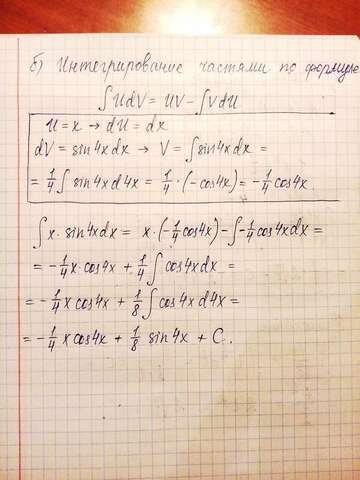 б) Интегрирование частями по формуле
∫UdV = UV - ∫VdU
U = x → dU = dx
dV = sin4xdx → V = ∫sin4xdx =
= 1/4 ∫ sin4xd4x = 1/4 · (-cos4x) = -1/4 cos4x
∫x · sin4xdx = x · (-1/4 cos4x) - ∫-1/4 cos4xdx =
= -1/4 x · cos4x + 1/4 ∫ cos4xdx =
= -1/4 x cos4x + 1/8 ∫ cos4xd4x =
= -1/4 x cos4x + 1/8 sin4x + C.